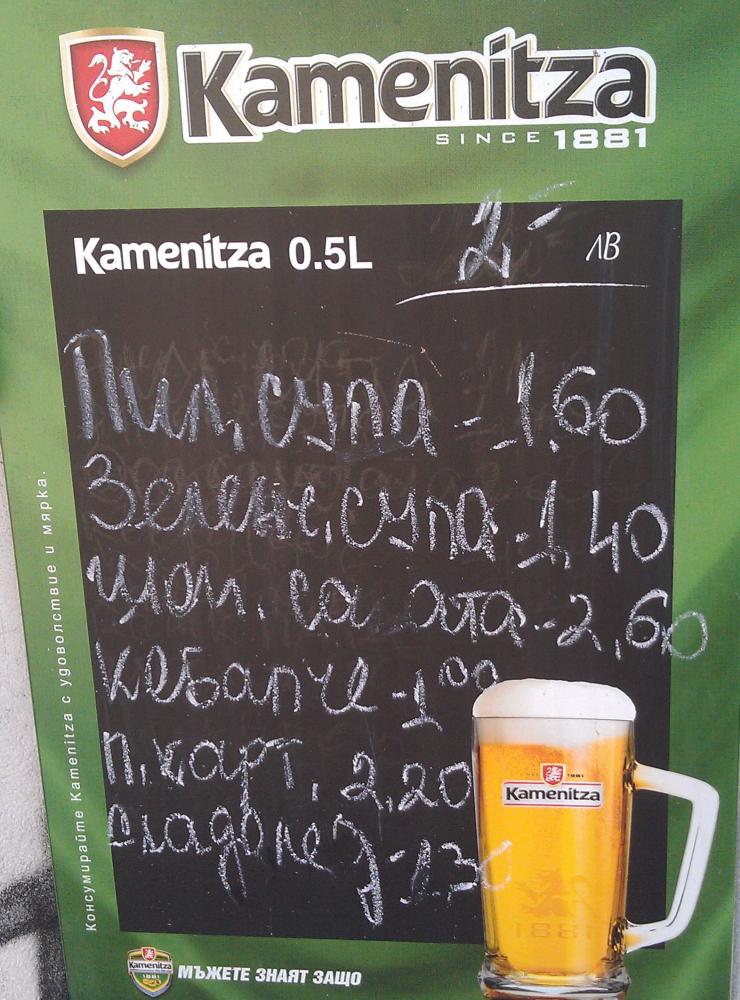 Kamenitza
SINCE 1881
Kamenitza 0.5L 2,- ЛВ
Пил, супа - 1,60
Зеленч, супа - 1,40
шоп. салата - 2,60
кебапче - 1 00
п. карт, 2,20
сладолед -
SINCE 1881
Kamenitza
1881
Консумирайте Kamenitza с удоволствие и мярка.
Kamenitza
1881
МЪЖЕТЕ ЗНАЯТ ЗАЩО